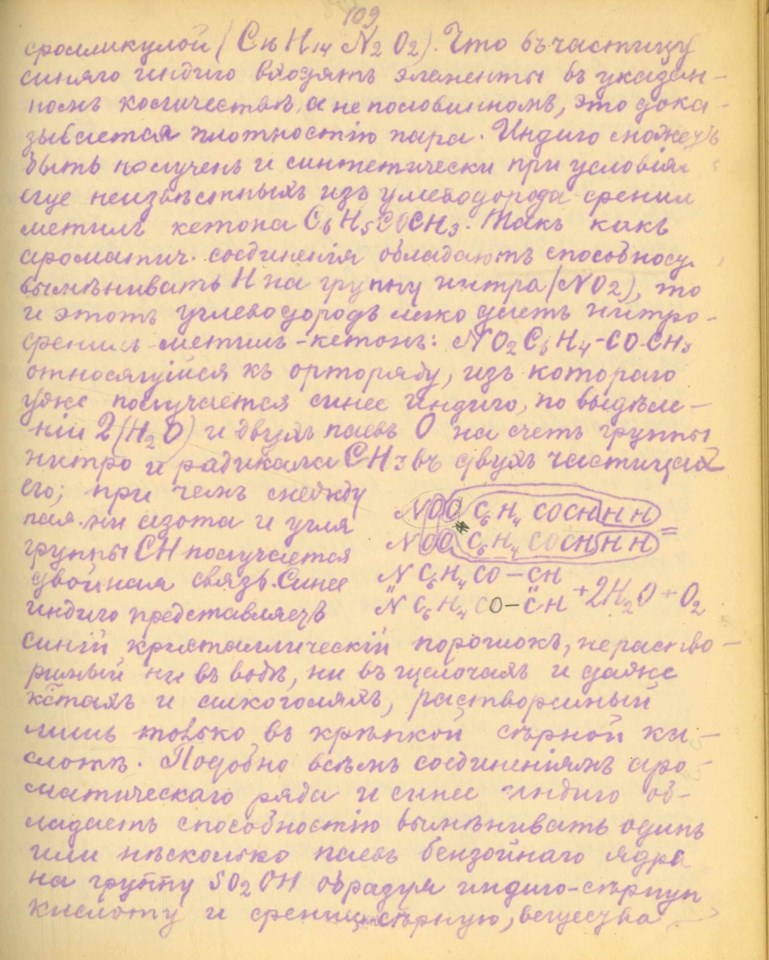 109
формулой (C16 H14 N2 O2). Что въ частицу
синяго индиго входятъ элементы въ указан-
номъ количествѣ, а не половинномъ, это дока-
зывается плотностію пара. Индиго можетъ
быть полученъ и синтетически при условія
еще неизвѣстныхъ изъ углеводорода фенил
метилъ кетона C6H5COCH3. Такъ какъ
ароматич. соединенія обладаютъ способносу
вымѣнивать H на группу нитра (NO2), то
и этотъ углеводородъ легко даетъ нитро-
фенилъ-метилъ-кетонъ: NO2C6H4-CO-CH3
относящійся къ орторяду, изъ котораго
уже получается синее индиго, по выдѣле-
ніи 2(H2O) и двухъ паевъ O на счетъ группы
нитро и радикала CH3 въ двухъ частицахъ
его; при чемъ между
паями азота и угля
группы CH получается
двойная связь. Синее
индиго представляетъ
NOO C6H4 COCH HH
NOO C6H4 COCH HH =
N C6H4 CO-CH
N C6H4 CO-CH + 2H2O + O2
синій кристаллическій порошокъ, нераство-
римый ни въ водѣ, ни въ щелочахъ и даже
кстахъ и алкоголяхъ, растворимый
лишь только въ крѣпкой сѣрной ки-
слотѣ. Подобно всѣмъ соединеніямъ аро-
матическаго ряда и синее индиго об-
ладаетъ способностію вымѣнивать одинъ
или нѣсколько паевъ бензойнаго ядра
на группу SO2OH образуя индиго-сѣрную
кислоту и феницинсѣрную, вещества